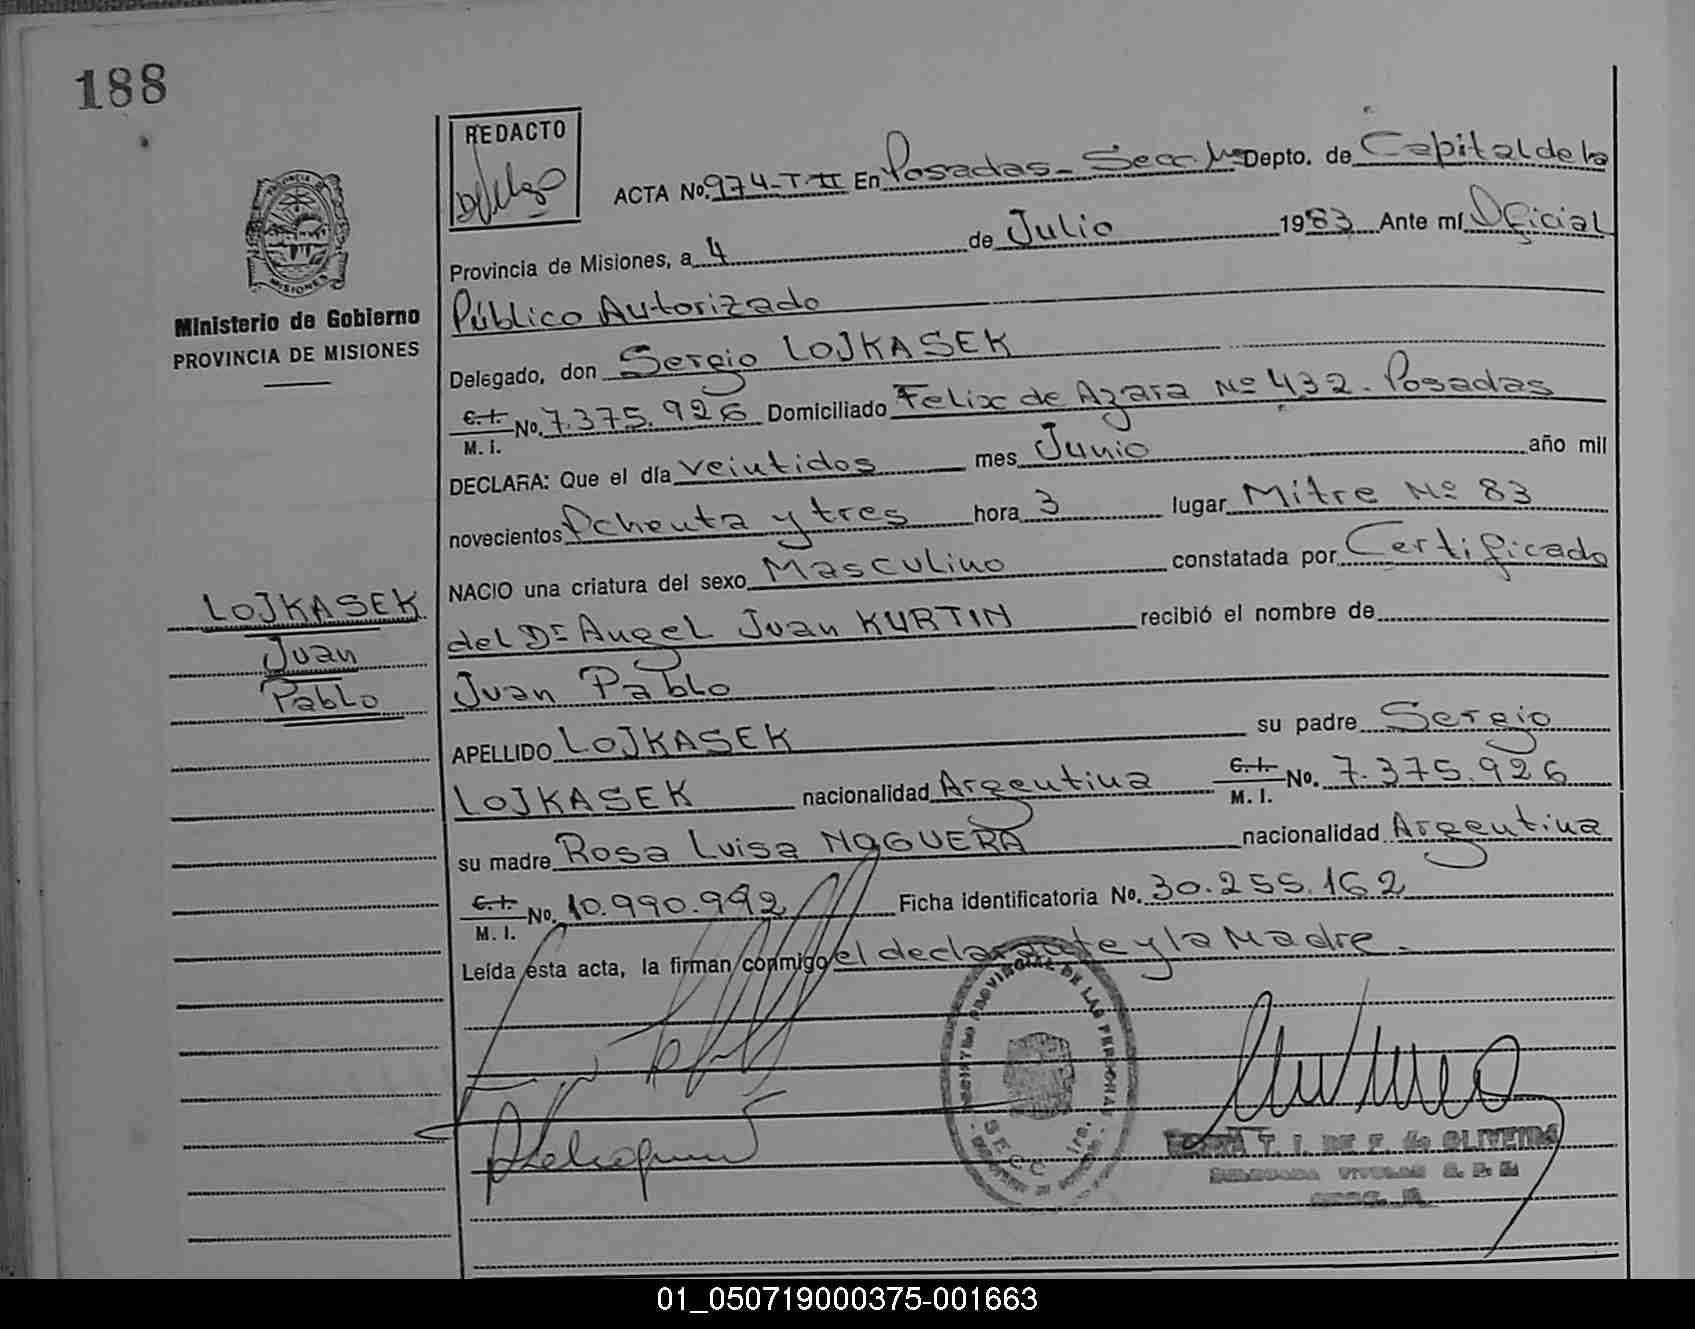 188
REDACTO
ACTA No. 974-T-II En Posadas - Secc 1ra Depto. de Capital de la
Provincia de Misiones, a 4 de Julio 1983 Ante mí Oficial
Ministerio de Gobierno
PROVINCIA DE MISIONES
Público Autorizado
Delegado, don Sergio LOJKASEK
C.I. M.I. No. 7.375.926 Domiciliado Felix de Azara Nº 432 - Posadas
DECLARA: Que el día veintidos mes Junio año mil
novecientos Ochenta y tres hora 3 lugar Mitre Nº 83
NACIO una criatura del sexo Masculino constatada por Certificado
del Dr Angel Juan KURTIN recibió el nombre de
Juan Pablo
LOJKASEK
Juan
Pablo
APELLIDO LOJKASEK su padre Sergio
LOJKASEK nacionalidad Argentina C.I. M.I. No. 7.375.926
su madre Rosa Luisa NOGUERA nacionalidad Argentina
C.I. M.I. No. 10.990.992 Ficha identificatoria No. 30.255.162
Leída esta acta, la firman conmigo el declarante y la Madre.
REGISTRO PROVINCIAL DE LAS PERSONAS
SECC. 1ra.
T. I. DE F. de OLIVEIRA
01_050719000375-001663